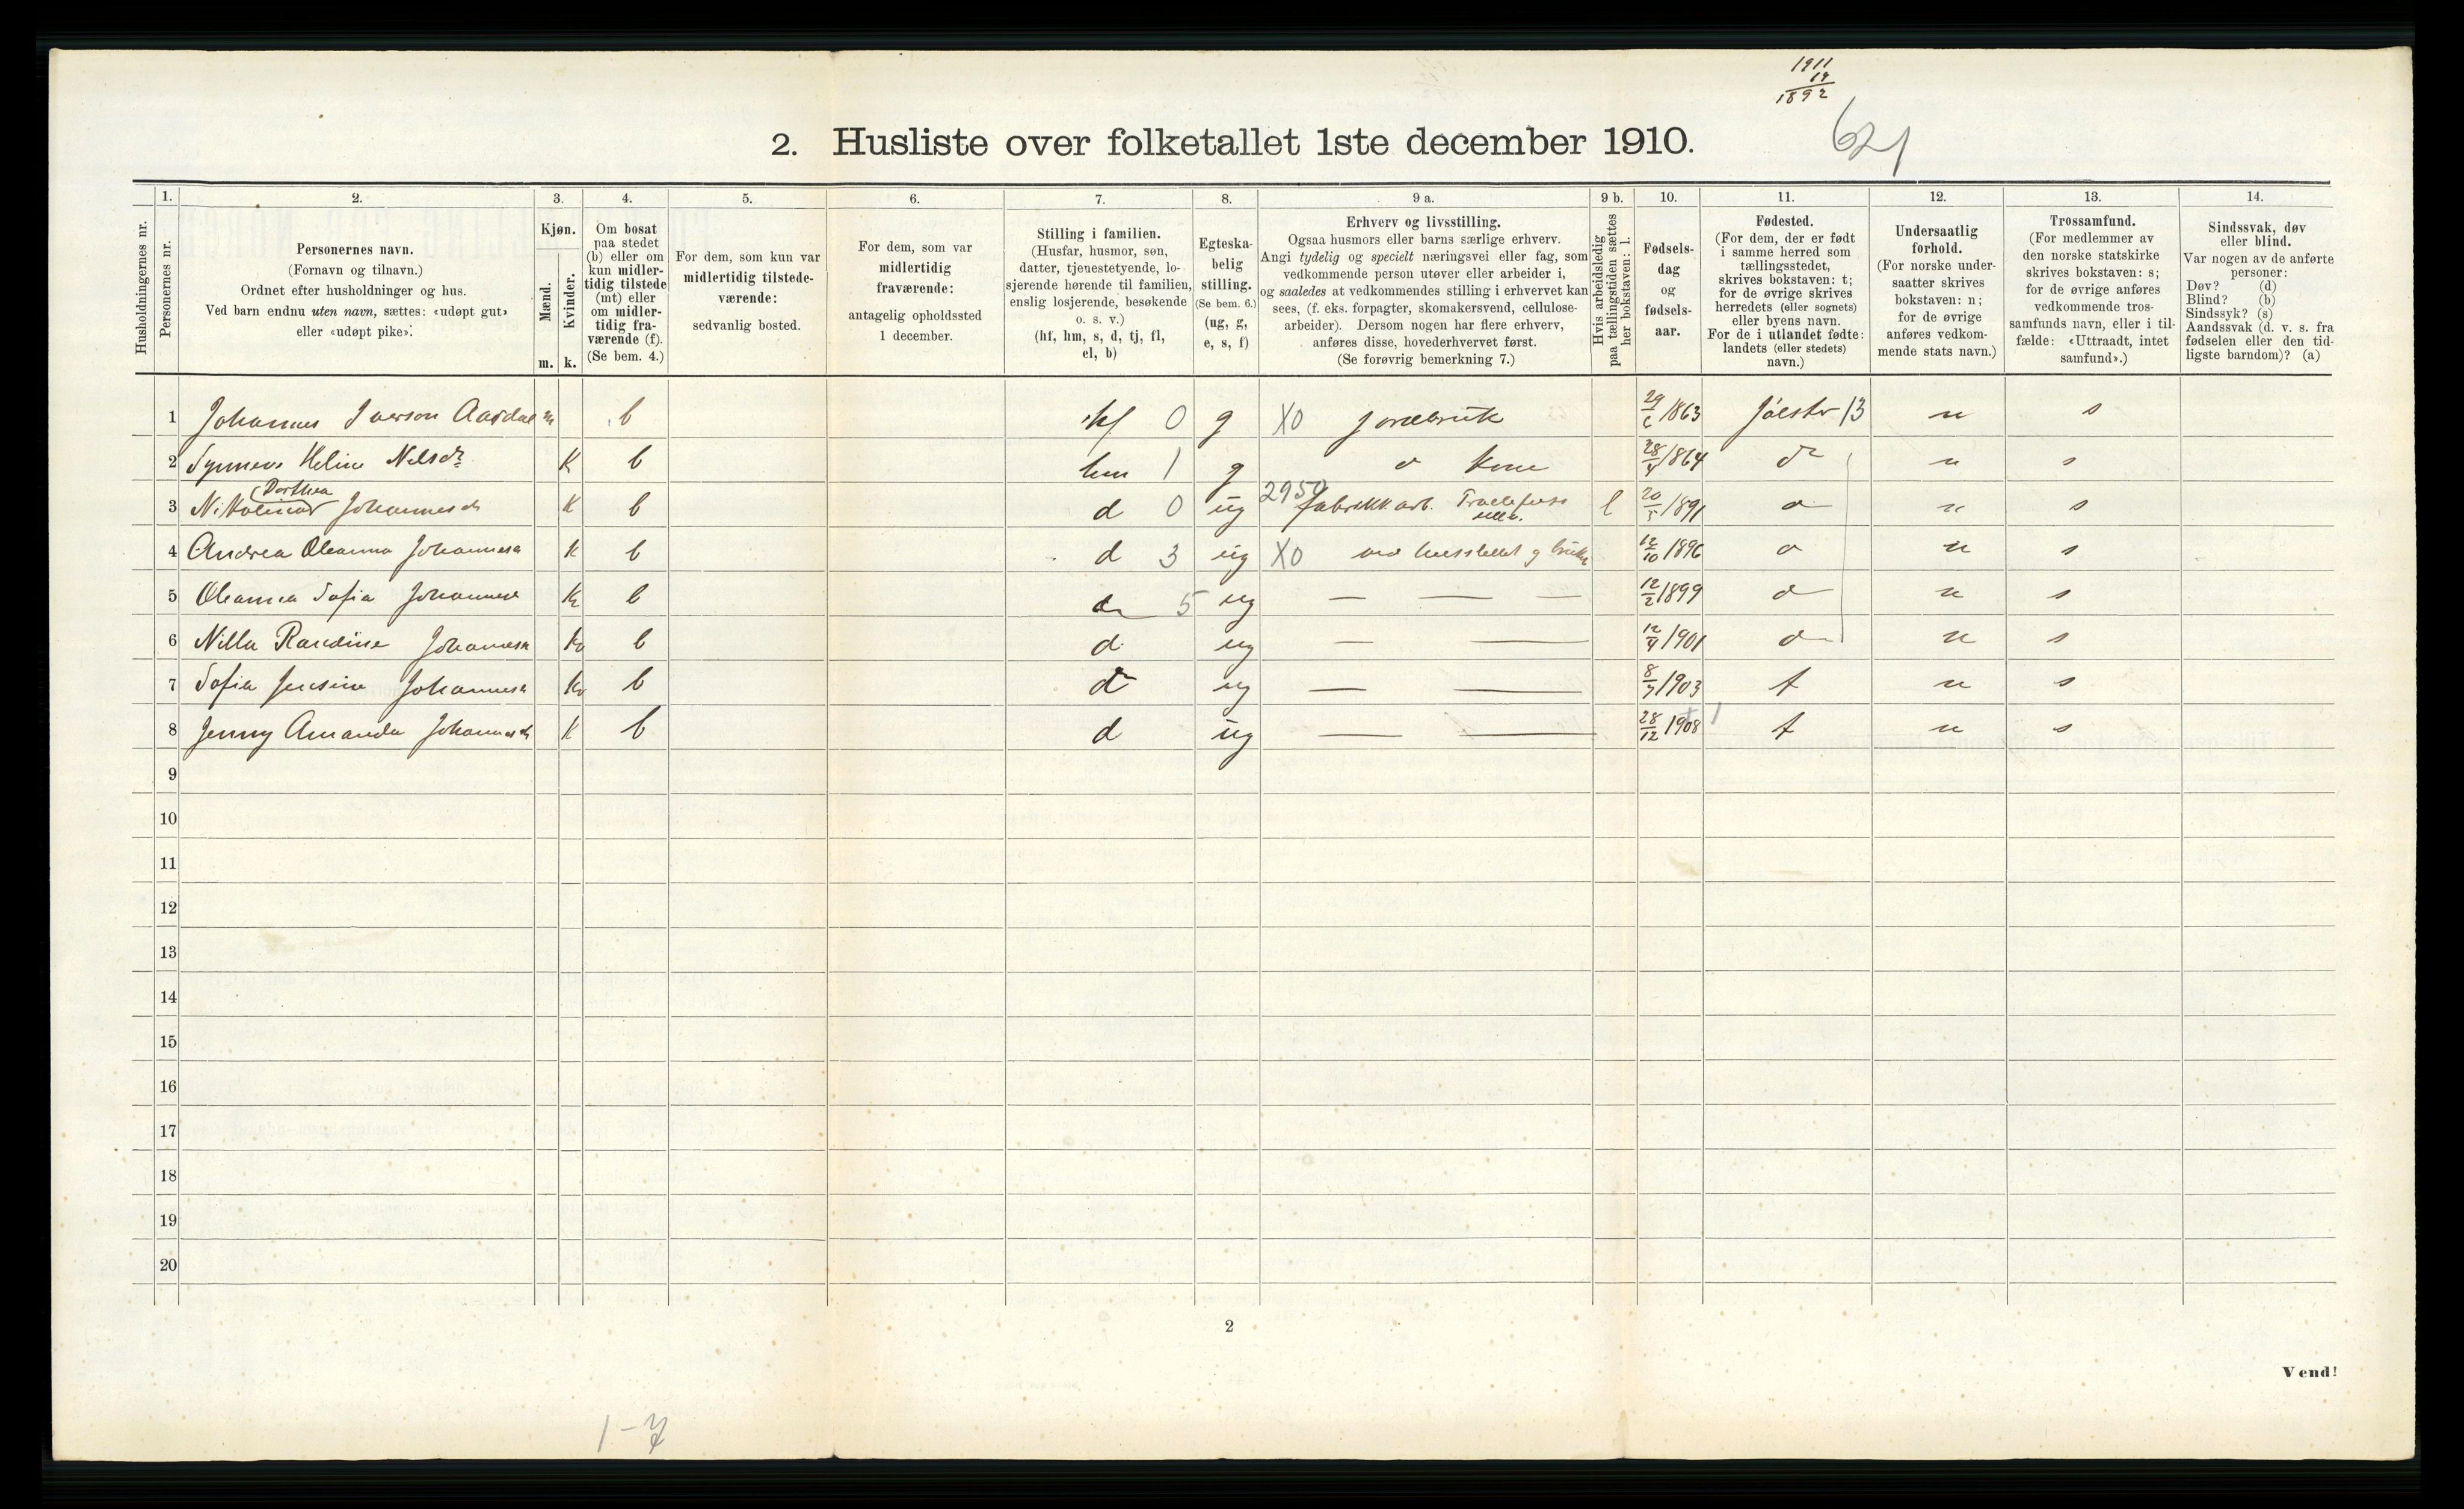 1911
19
1892
2. Husliste over folketallet 1ste december 1910.
621
1. 2. 3. 4. 5. 6. 7. 8. 9 a. 9 b. 10. 11. 12. 13. 14.
Husholdningernes nr.
Personernes nr.
Personernes navn.
(Fornavn og tilnavn.)
Ordnet efter husholdninger og hus.
Ved barn endnu uten navn, sættes: «udøpt gut»
eller «udøpt pike».
Kjøn.
Mænd.
Kvinder.
m. k.
Om bosat
paa stedet
(b) eller om
kun midler-
tidig tilstede
(mt) eller
om midler-
tidig fra-
værende (f).
(Se bem. 4.)
For dem, som kun var
midlertidig tilstede-
værende:
sedvanlig bosted.
For dem, som var
midlertidig
fraværende:
antagelig opholdssted
1 december.
Stilling i familien.
(Husfar, husmor, søn,
datter, tjenestetyende, lo-
sjerende hørende til familien,
enslig losjerende, besøkende
o. s. v.)
(hf, hm, s, d, tj, fl,
el, b)
Egteska-
belig
stilling.
(Se bem. 6.)
(ug, g,
e, s, f)
Erhverv og livsstilling.
Ogsaa husmors eller barns særlige erhverv.
Angi tydelig og specielt næringsvei eller fag, som
vedkommende person utøver eller arbeider i,
og saaledes at vedkommendes stilling i erhvervet kan
sees, (f. eks. forpagter, skomakersvend, cellulose-
arbeider). Dersom nogen har flere erhverv,
anføres disse, hovederhvervet først.
(Se forøvrig bemerkning 7.)
Hvis arbeidsledig
paa tællingstiden sættes
her bokstaven: l.
Fødsels-
dag
og
fødsels-
aar.
Fødested.
(For dem, der er født
i samme herred som
tællingsstedet,
skrives bokstaven: t;
for de øvrige skrives
herredets (eller sognets)
eller byens navn.
For de i utlandet fødte:
landets (eller stedets)
navn.)
Undersaatlig
forhold.
(For norske under-
saatter skrives
bokstaven: n;
for de øvrige
anføres vedkom-
mende stats navn.)
Trossamfund.
(For medlemmer av
den norske statskirke
skrives bokstaven: s;
for de øvrige anføres
vedkommende tros-
samfunds navn, eller i til-
fælde: «Uttraadt, intet
samfund».)
Sindssvak, døv
eller blind.
Var nogen av de anførte
personer:
Døv? (d)
Blind? (b)
Sindssyk? (s)
Aandssvak (d. v. s. fra
fødselen eller den tid-
ligste barndom)? (a)
1 Johannes Iverson Aasdal m b hf 0 g X0 jordbruk 29/6 1863 Jølster 13 n s
2 Synneve Heline Nelsdr K b hm 1 g d kone 28/4 1864 do n s
Dorthea
3 Nikoline Johannesd K b d 0 ug 2950 fabrikkarb. l 20/5 1891 d n s
4 Andrea Oleanna Johannesd K b d 3 ug X0 ved husstellet og bruke 12/10 1896 d n s
5 Oleanna Sofia Johannesd K b d 5 ug — — — 12/2 1899 d n s
6 Nilla Randine Johannesd K b d ug — — 12/4 1901 d n s
7 Sofia Jensine Johannesd K b d ug — — 8/7 1903 t n s
8 Jenny Amanda Johannesd K b d ug — — 28/12 1908 1 t n s
9
10
11
12
13
14
15
16
17
18
19
20
2
Vend!